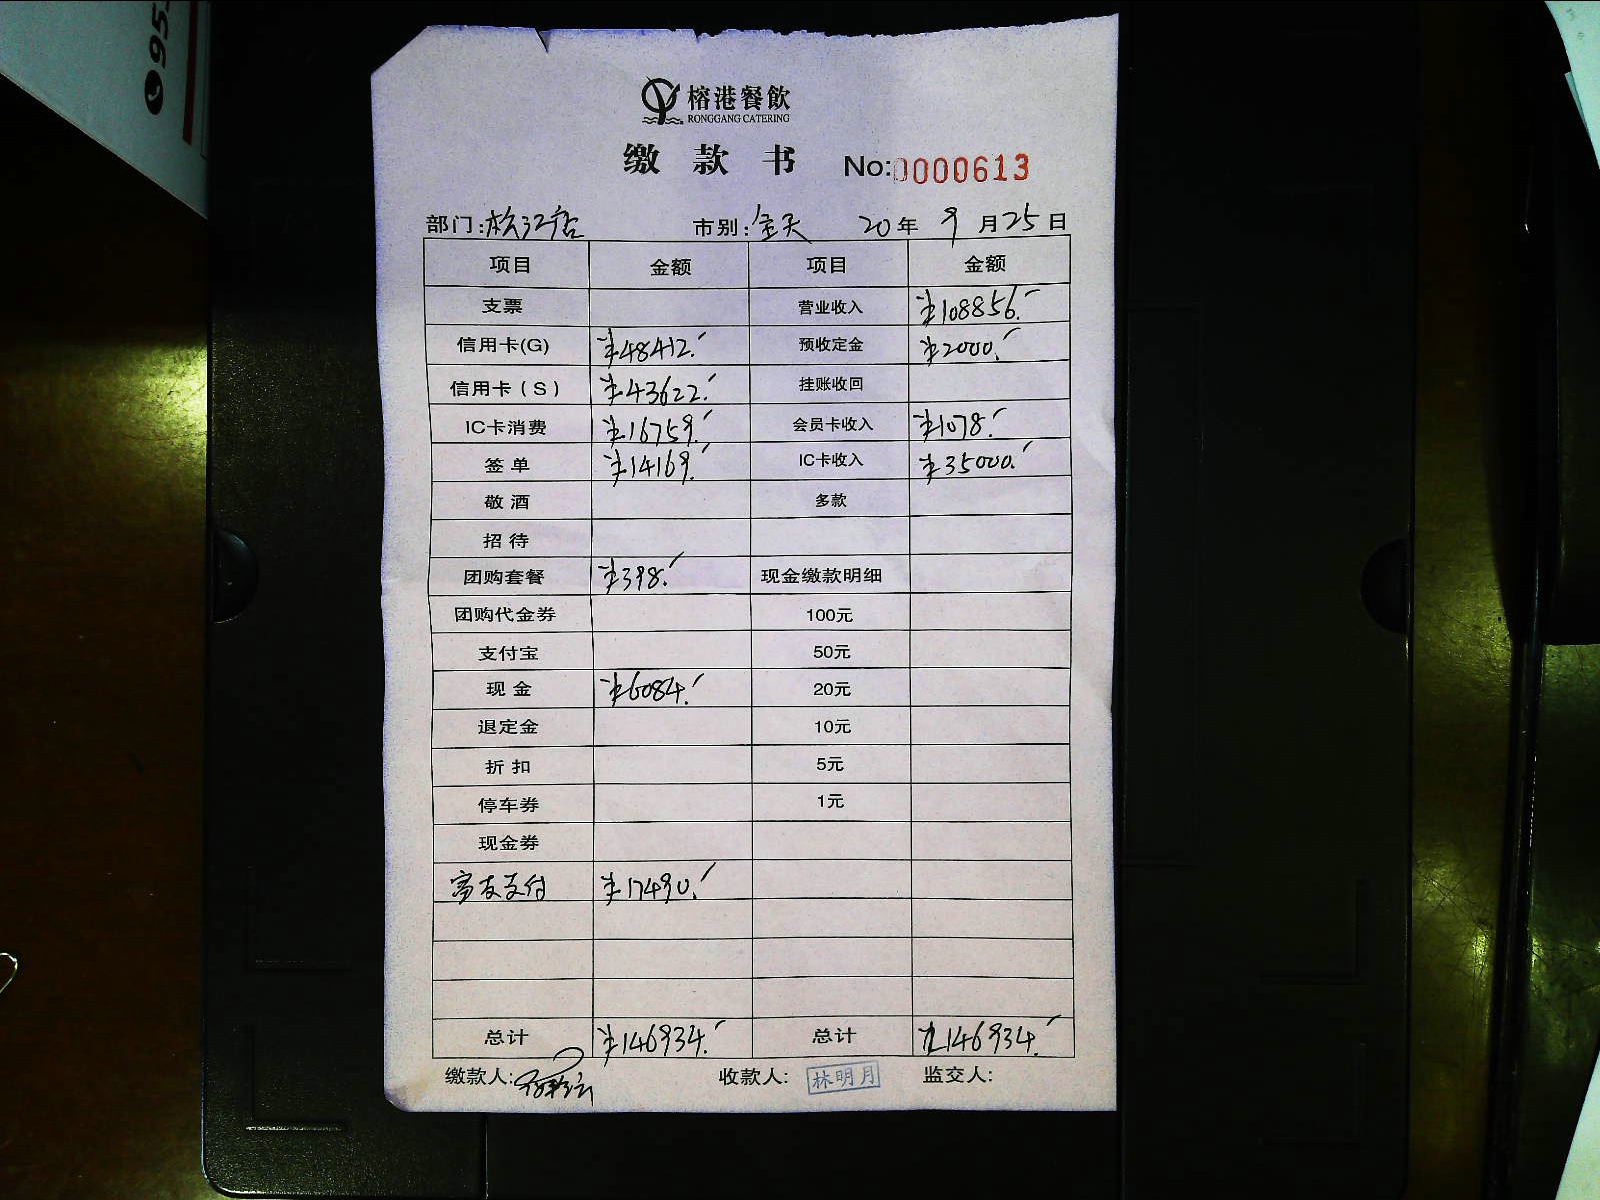 95
榕港餐飲
RONGGANG CATERING
缴款书 No:0000613
部门:松江店 市别:全天 20年 9月25日
项目 金额 项目 金额
支票 营业收入 ¥108856.
信用卡(G) ¥48412. 预收定金 ¥2000.
信用卡(S) ¥43622. 挂账收回
IC卡消费 ¥16759. 会员卡收入 ¥1078.
签单 ¥14169. IC卡收入 ¥35000.
敬酒 多款
招待
团购套餐 ¥398. 现金缴款明细
团购代金券 100元
支付宝 50元
现金 ¥6084. 20元
退定金 10元
折扣 5元
停车券 1元
现金券
富友支付 ¥17490.
总计 ¥146934. 总计 ¥146934.
缴款人: 收款人: 林明月 监交人: